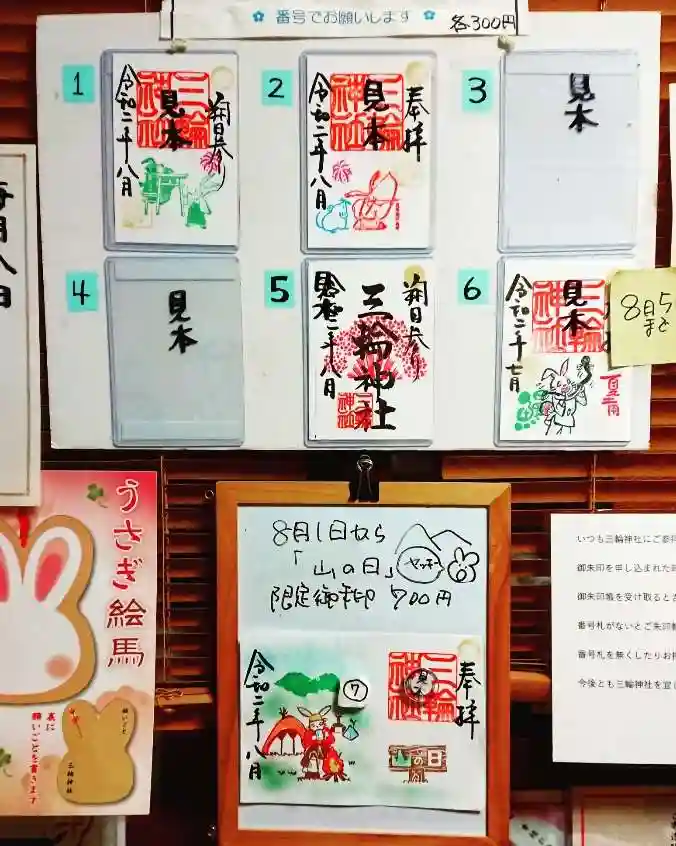 ✿ 番号でお願いします ✿
各300円
1
令和二年八月
三輪神社
見本
朔日参り
2
令和二年八月
三輪神社
見本
奉拝
3
見本
4
見本
5
見本
二年八月
三輪神社
三輪神社
朔日参り
6
令和二年七月
三輪神社
見本
8日5
まで
毎月八日
うさぎ絵馬
裏に
願いごとを書きます
願いごと
三輪神社
8月1日から
「山の日」
ヤッホー
限定御朱印 700円
令和二年八月
7
三輪神社
見本
奉拝
山の日
いつも三輪神社にご参拝
御朱印を申し込まれた時
御朱印帳を受け取るとき
番号札がないとご朱印帳
番号札を無くしたりお持
今後とも三輪神社を宜し